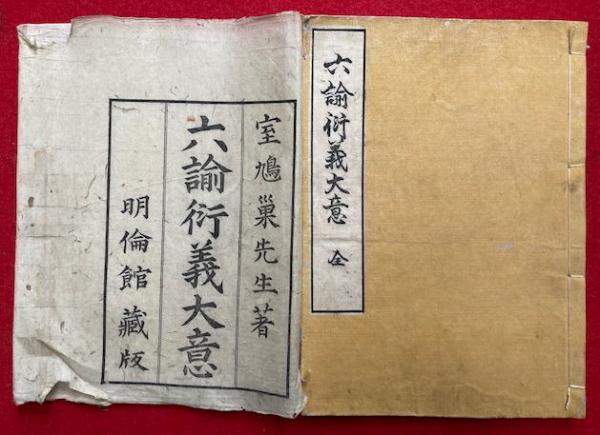 六諭衍義大意 全
室鳩巢先生著
六諭衍義大意
明倫館藏版